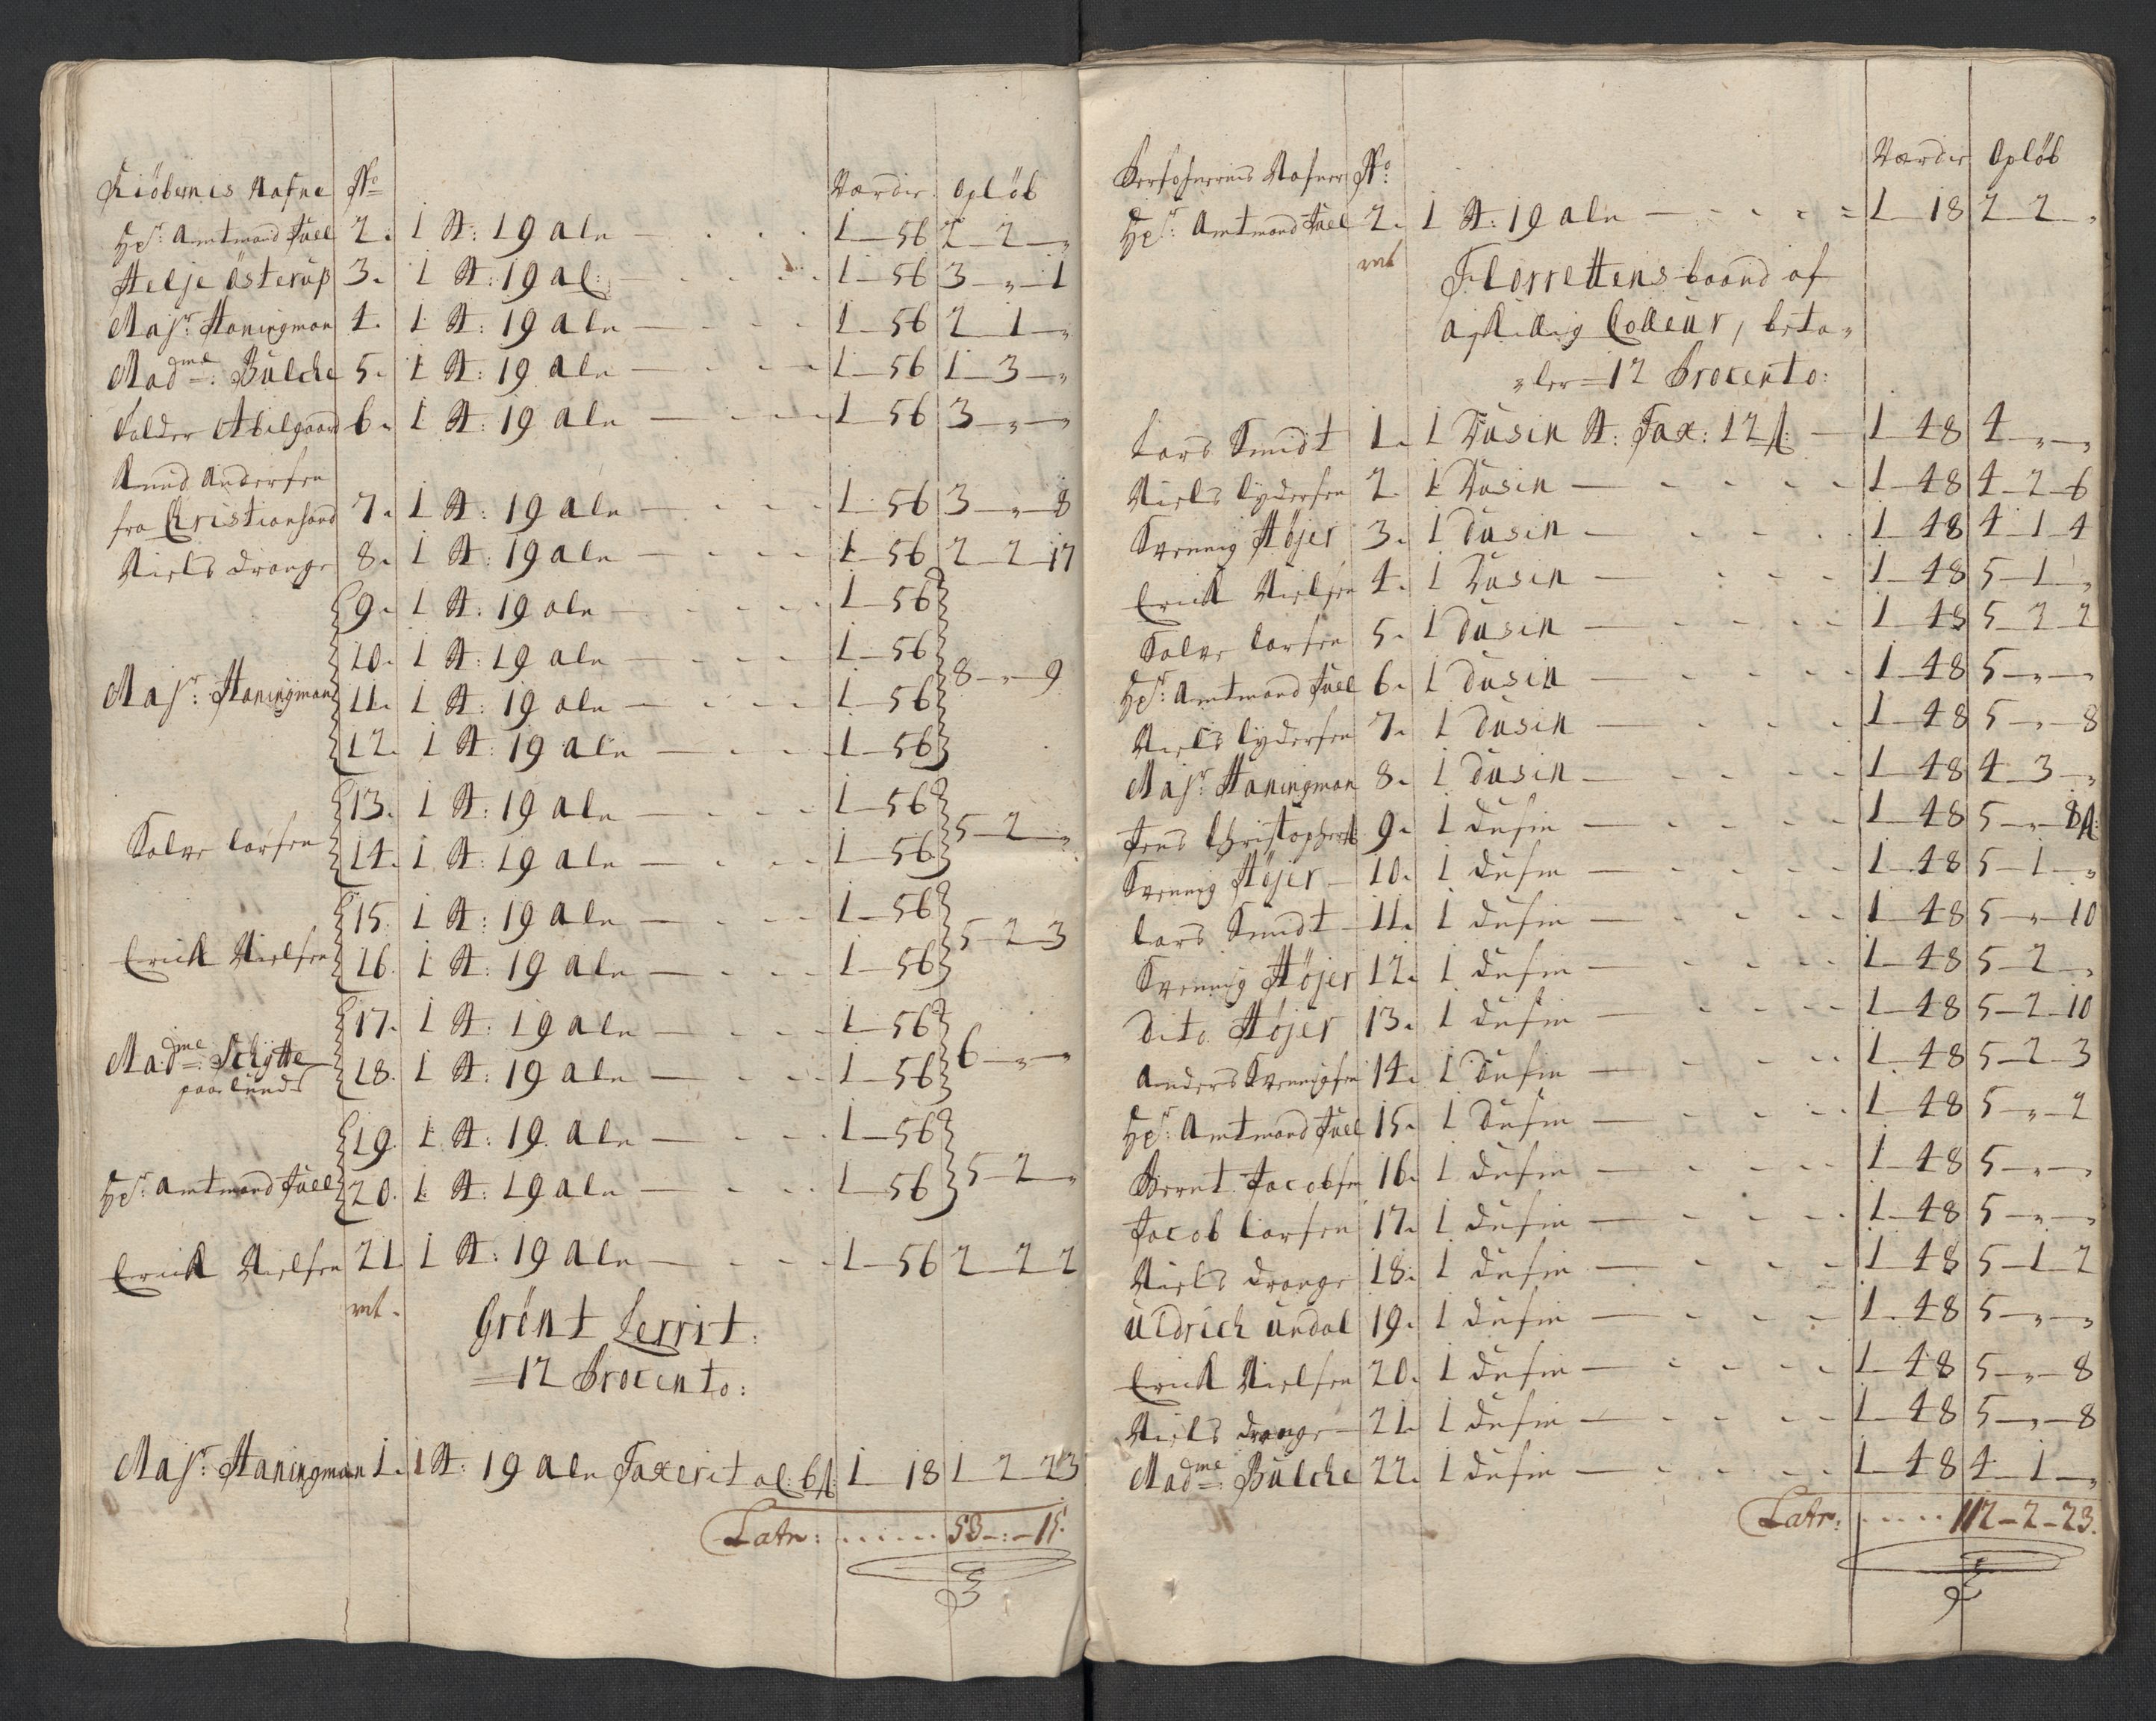 Kiöbernes Nafne No Værdie Oplöb
HEr: Amtmand Juel 2. 1 St: 19 Aln 1-56 2-2-"
Helje Østerup 3. 1 St: 19 Al: 1-56 3-"-1
Majr: Haningman 4. 1 St: 19 Aln 1-56 2-1-"
Madme: Bülche 5. 1 St: 19 Aln 1-56 1-3-"
Falder Abilgaard 6. 1 St: 19 Aln 1-56 3-"-"
Knud Andersen
fra Christiansand 7. 1 St: 19 Aln 1-56 3-"-8
Niels Drange 8. 1 St: 19 Aln 1-56 2-2-17
9. 1 St: 19 Aln 1-56
10. 1 St: 19 Aln 1-56
Majr: Haningman 11. 1 St: 19 Aln 1-56 8-"-9
12. 1 St: 19 Aln 1-56
13. 1 St: 19 Aln 1-56
Salve Larsen 14. 1 St: 19 Aln 1-56 5-2-"
15. 1 St: 19 Aln 1-56
Erick Nielsen 16. 1 St: 19 Aln 1-56 5-2-3
17. 1 St: 19 Aln 1-56
Madme: Schytte 18. 1 St: 19 Aln 1-56 6-"-"
paa Lunde
19. 1 St: 19 Aln 1-56
HEr: Amtmand Juel 20. 1 St: 19 Aln 1-56 5-2-"
Erick Nielsen 21. 1 St: 19 Aln 1-56 2-2-2
Grönt Lerrit:
=12 Procento:
Majr: Haningman 1. 1 St: 19 Aln Taxerit al: 6 s: 1-18 1-2-23
Latr: 53-:-15.
Persohnernes Nafner No: Værdie Oplöb
HEr: Amtmand Juel 2. 1 St: 19 Aln 1-18 2-2-"
Florrettens baand af
adskillig Colleur, beta"
"ler=12 Procento:
Lars Smidt 1. 1 Dusin St: Tax: 12 s: 1-48 4-"-"
Niels Lydersen 2. 1 Dusin 1-48 4-2-6
Svennig Høyer 3. 1 Dusin 1-48 4-1-4
Erick Nielsen 4. 1 Dusin 1-48 5-1-"
Salve Larsen 5. 1 Dusin 1-48 5-2-2
HEr: Amtmand Juel 6. 1 Dusin 1-48 5-"-"
Niels Lydersen 7. 1 Dusin 1-48 5-"-8
Majr: Haningman 8. 1 Dusin 1-48 4-3-"
Jens Christophers: 9. 1 Dusin 1-48 5-"-8 s:
Svennig Høyer 10. 1 Dusin 1-48 5-1-"
Lars Smidt 11. 1 Dusin 1-48 5-"-10
Svennig Høyer 12. 1 Dusin 1-48 5-2-"
Dito Høyer 13. 1 Dusin 1-48 5-2-10
Anders Svennigsen 14. 1 Dusin 1-48 5-2-3
HEr: Amtmand Juel 15. 1 Dusin 1-48 5-"-2
Bernt Jacobsen 16. 1 Dusin 1-48 5-"-"
Jacob Larsen 17. 1 Dusin 1-48 5-"-"
Niels Drange 18. 1 Dusin 1-48 5-1-2
Uldrich Undal 19. 1 Dusin 1-48 5-"-"
Erick Nielsen 20. 1 Dusin 1-48 5-"-8
Niels Drange 21. 1 Dusin 1-48 5-"-8
Madme: Bülche 22. 1 Dusin 1-48 4-1-"
Latr: 112-2-23.